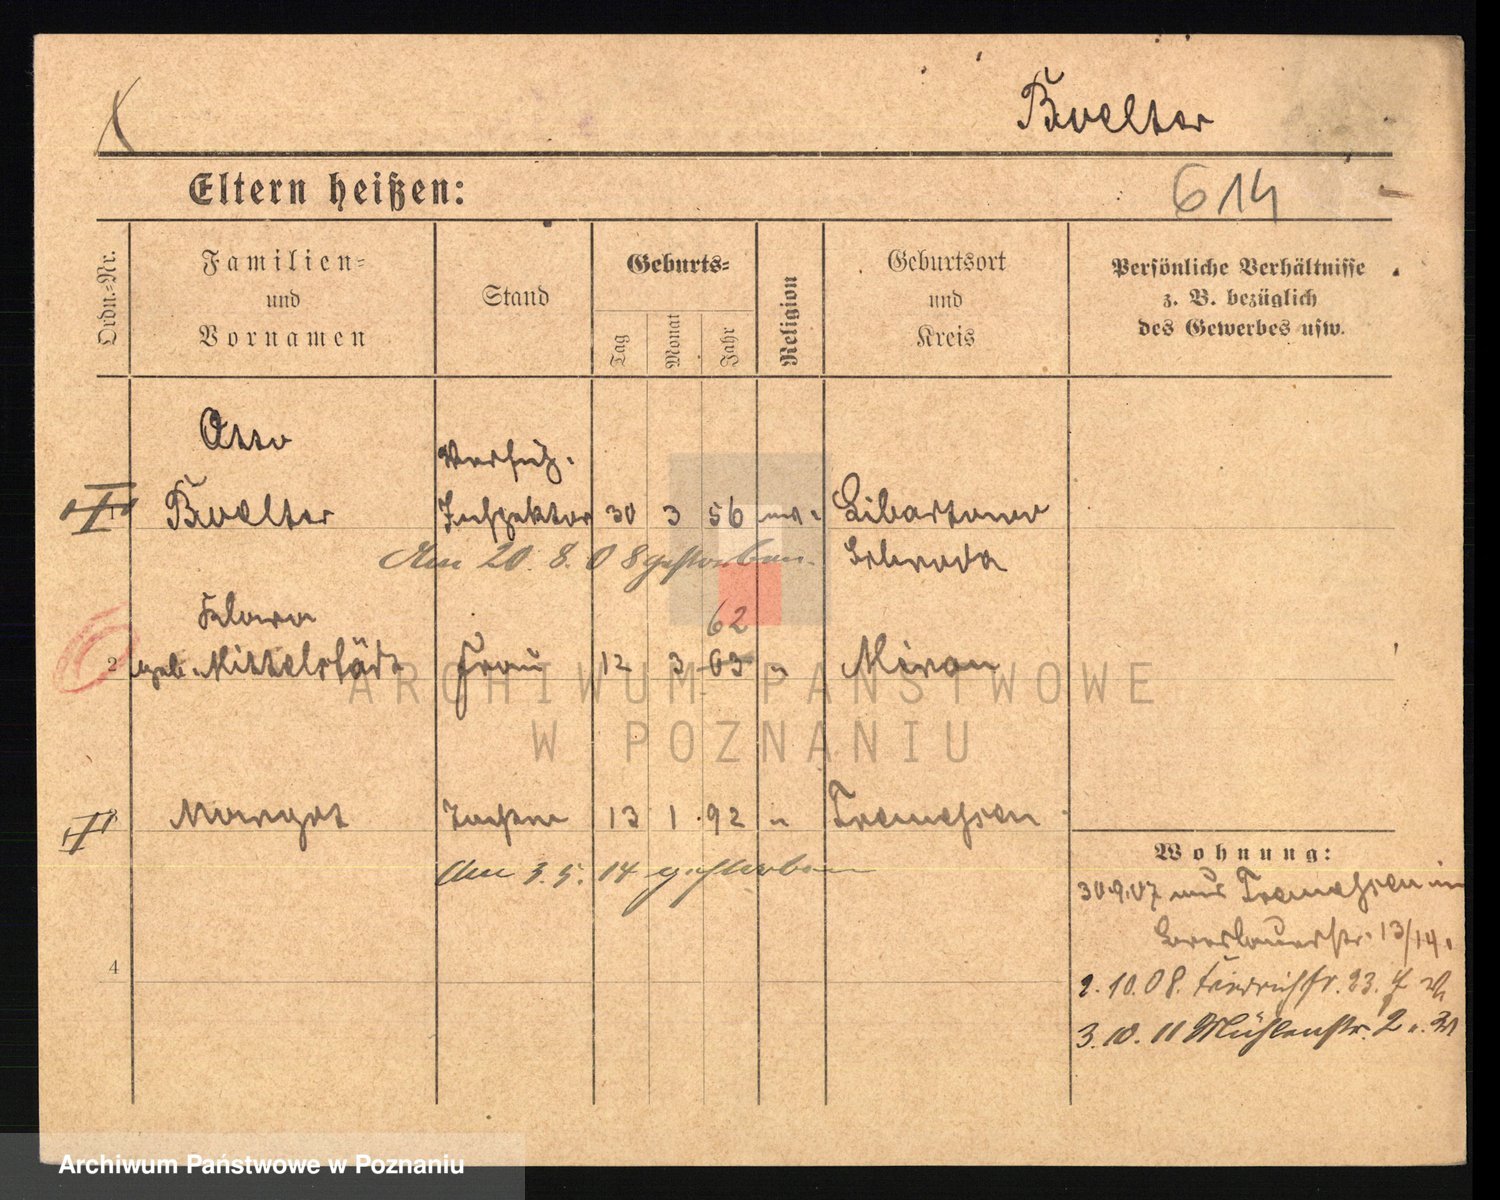 Boelter
Eltern heißen:
614
Ordn.-Nr.
Familien-
und
Vornamen
Stand
Geburts-
Tag
Monat
Jahr
Religion
Geburtsort
und
Kreis
Persönliche Verhältnisse
z. B. bezüglich
des Gewerbes usw.
Otto
Boelter
Inspektor
30 3 56
Schroda
Am 20. 8. 08 gestorben.
Klara
2 geb. Mittelstädt Frau 12 3 63
62
Margot
13 1 92 "
Tremessen
Am 3. 5. 14 gestorben
4
Wohnung:
30.9.07 aus Tremessen
13/14.
2. 10. 08. Friedrichstr. 23.
3. 10. 11 Mühlenstr. 2
ARCHIWUM PAŃSTWOWE
W POZNANIU
Archiwum Państwowe w Poznaniu